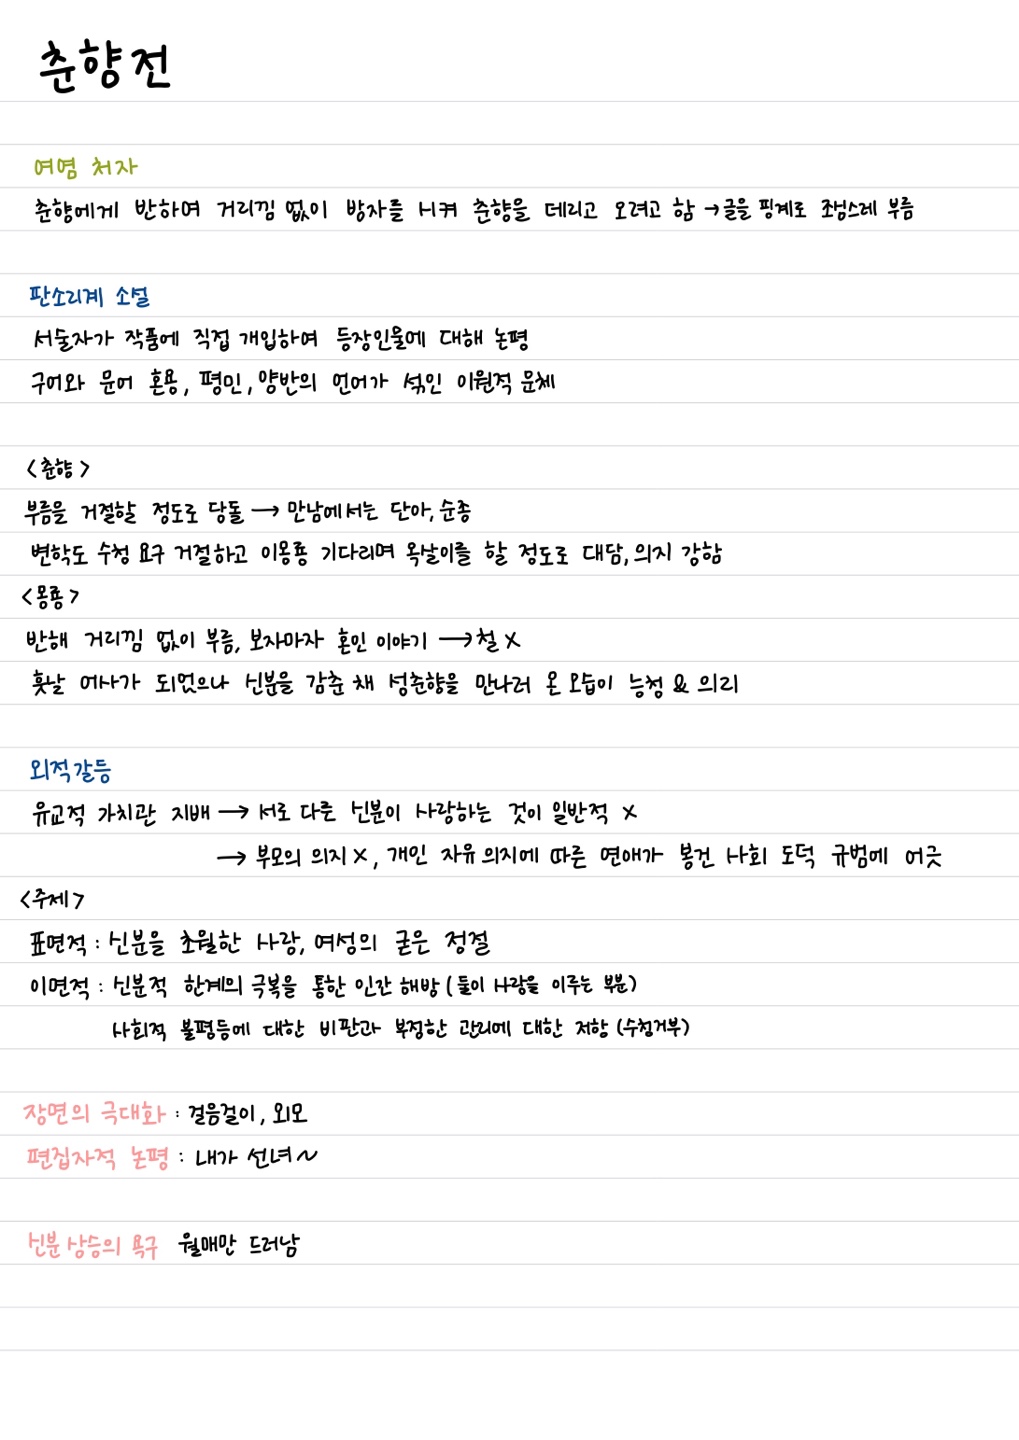 춘향전
여염 처자
춘향에게 반하여 거리낌 없이 방자를 시켜 춘향을 데리고 오려고 함 → 글을 핑계로 조심스레 부름
판소리계 소설
서술자가 작품에 직접 개입하여 등장인물에 대해 논평
구어와 문어 혼용, 평민, 양반의 언어가 섞인 이원적 문체
<춘향>
부름을 거절할 정도로 당돌 → 만남에서는 단아, 순종
변학도 수청 요구 거절하고 이몽룡 기다리며 옥살이를 할 정도로 대담, 의지 강함
<몽룡>
반해 거리낌 없이 부름, 보자마자 혼인 이야기 → 철 X
훗날 어사가 되었으나 신분을 감춘 채 성춘향을 만나러 온 모습이 능청 & 의리
외적갈등
유교적 가치관 지배 → 서로 다른 신분이 사랑하는 것이 일반적 X
→ 부모의 의지 X, 개인 자유 의지에 따른 연애가 봉건 사회 도덕 규범에 어긋
<주제>
표면적 : 신분을 초월한 사랑, 여성의 굳은 정절
이면적 : 신분적 한계의 극복을 통한 인간 해방 (둘이 사랑을 이루는 부분)
사회적 불평등에 대한 비판과 부정한 관리에 대한 저항 (수청거부)
장면의 극대화 : 걸음걸이, 외모
편집자적 논평 : 내가 선녀~
신분 상승의 욕구 월매만 드러남